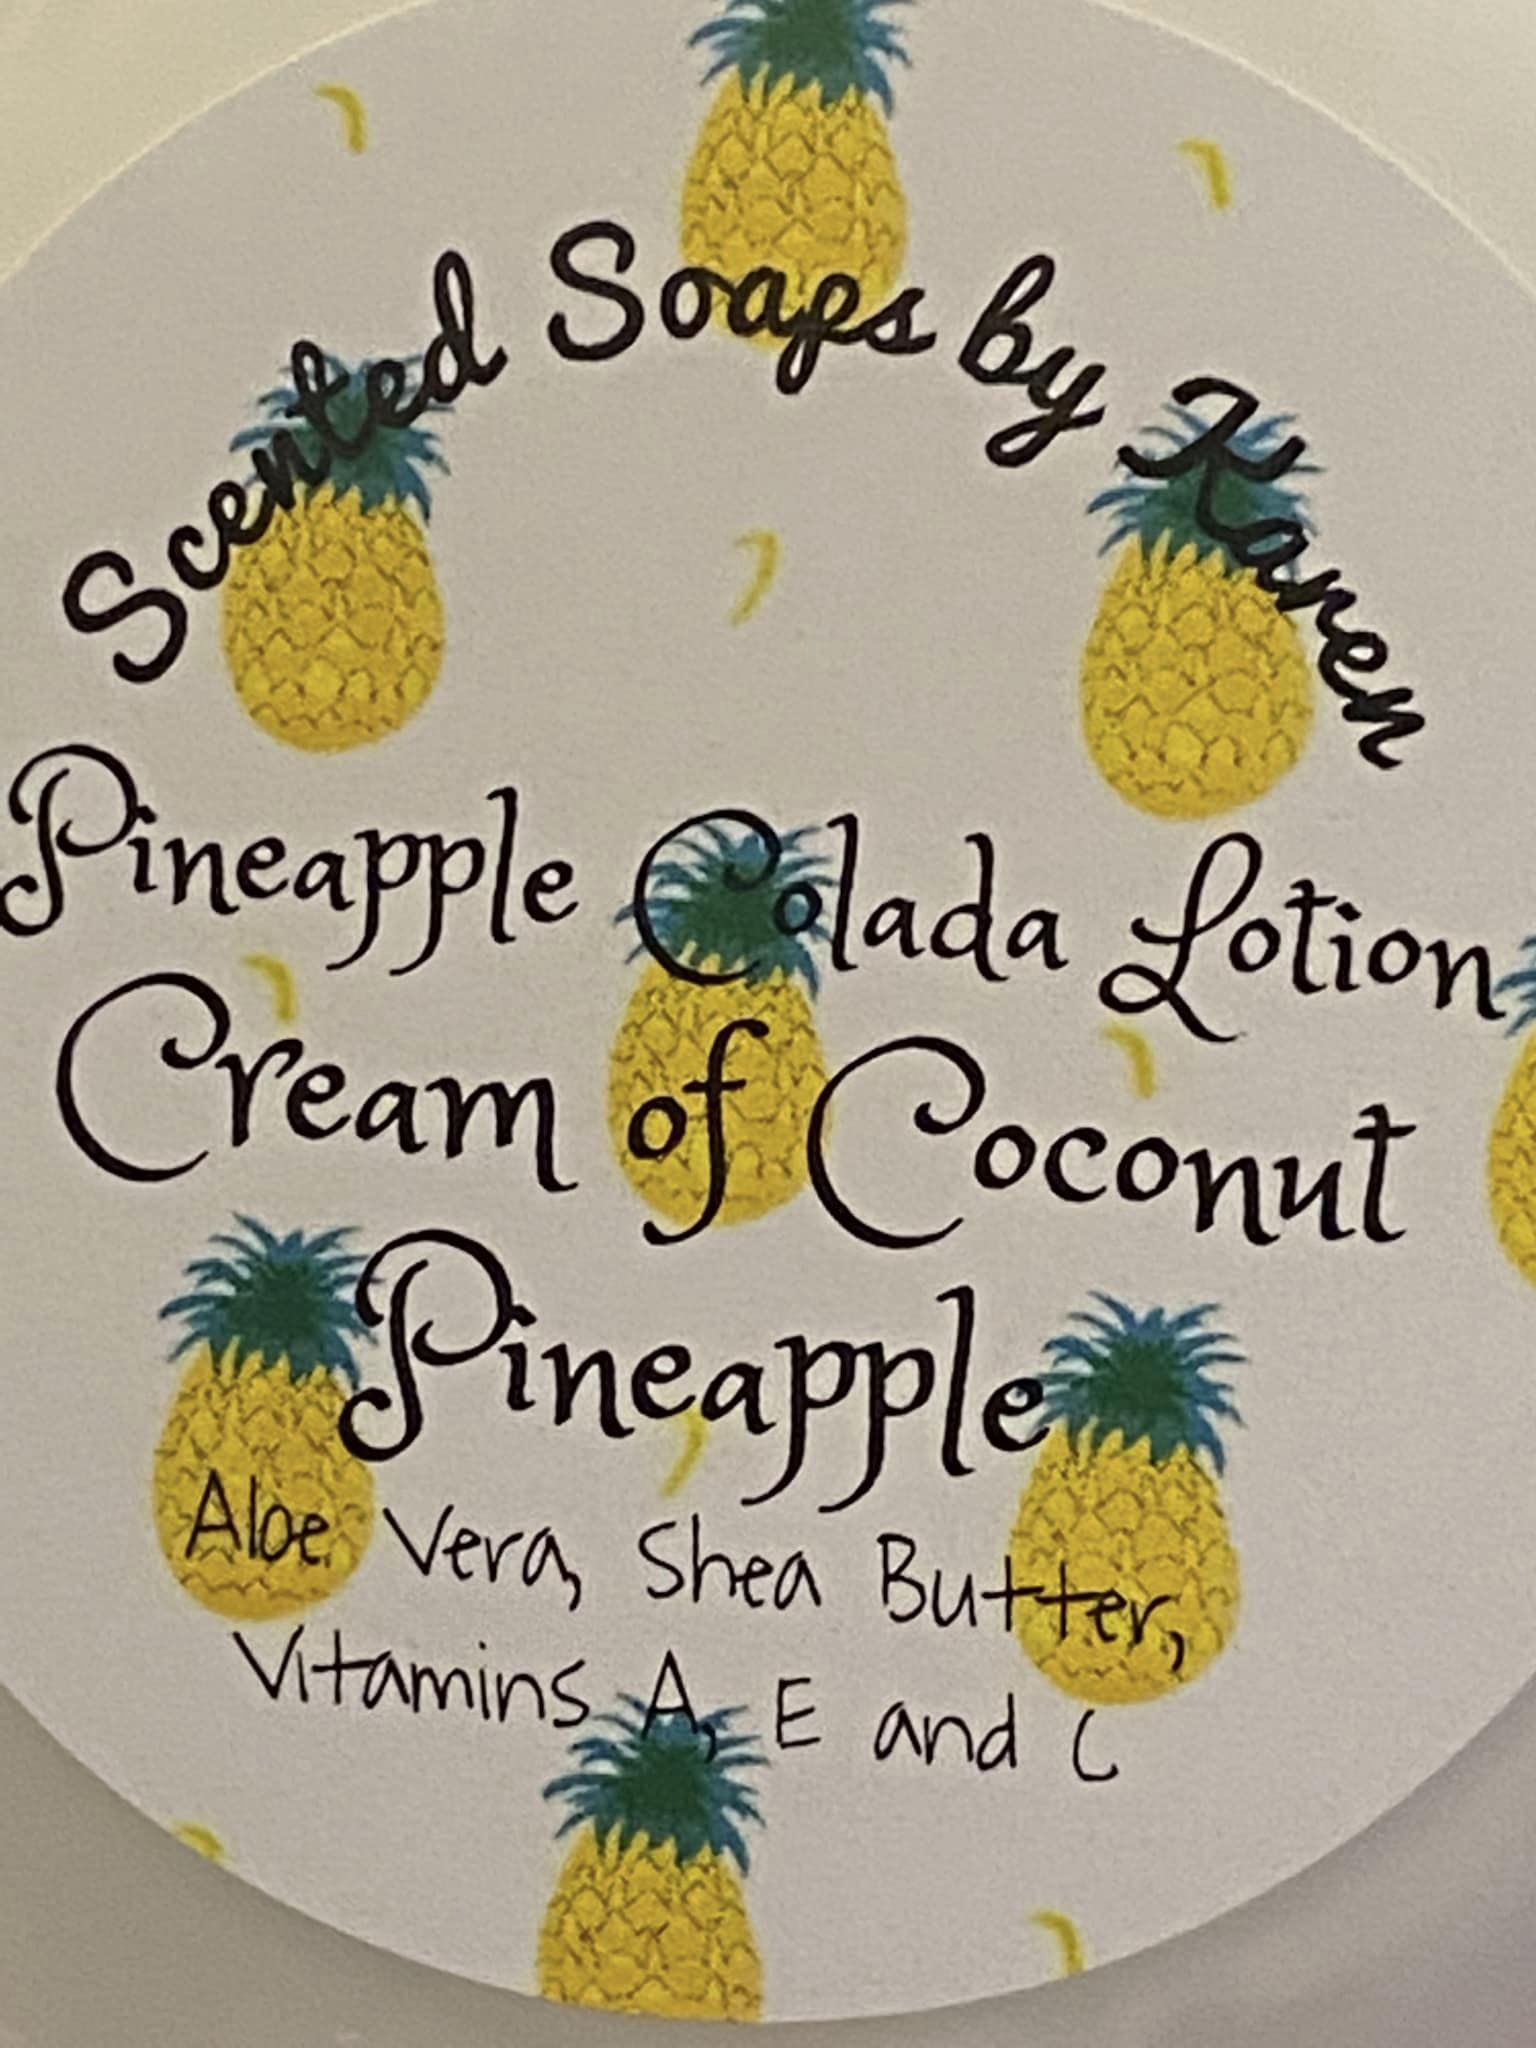 Scented Soaps by Karen
Pineapple Colada Lotion
Cream of Coconut
Pineapple
Aloe Vera, Shea Butter,
Vitamins A, E and C